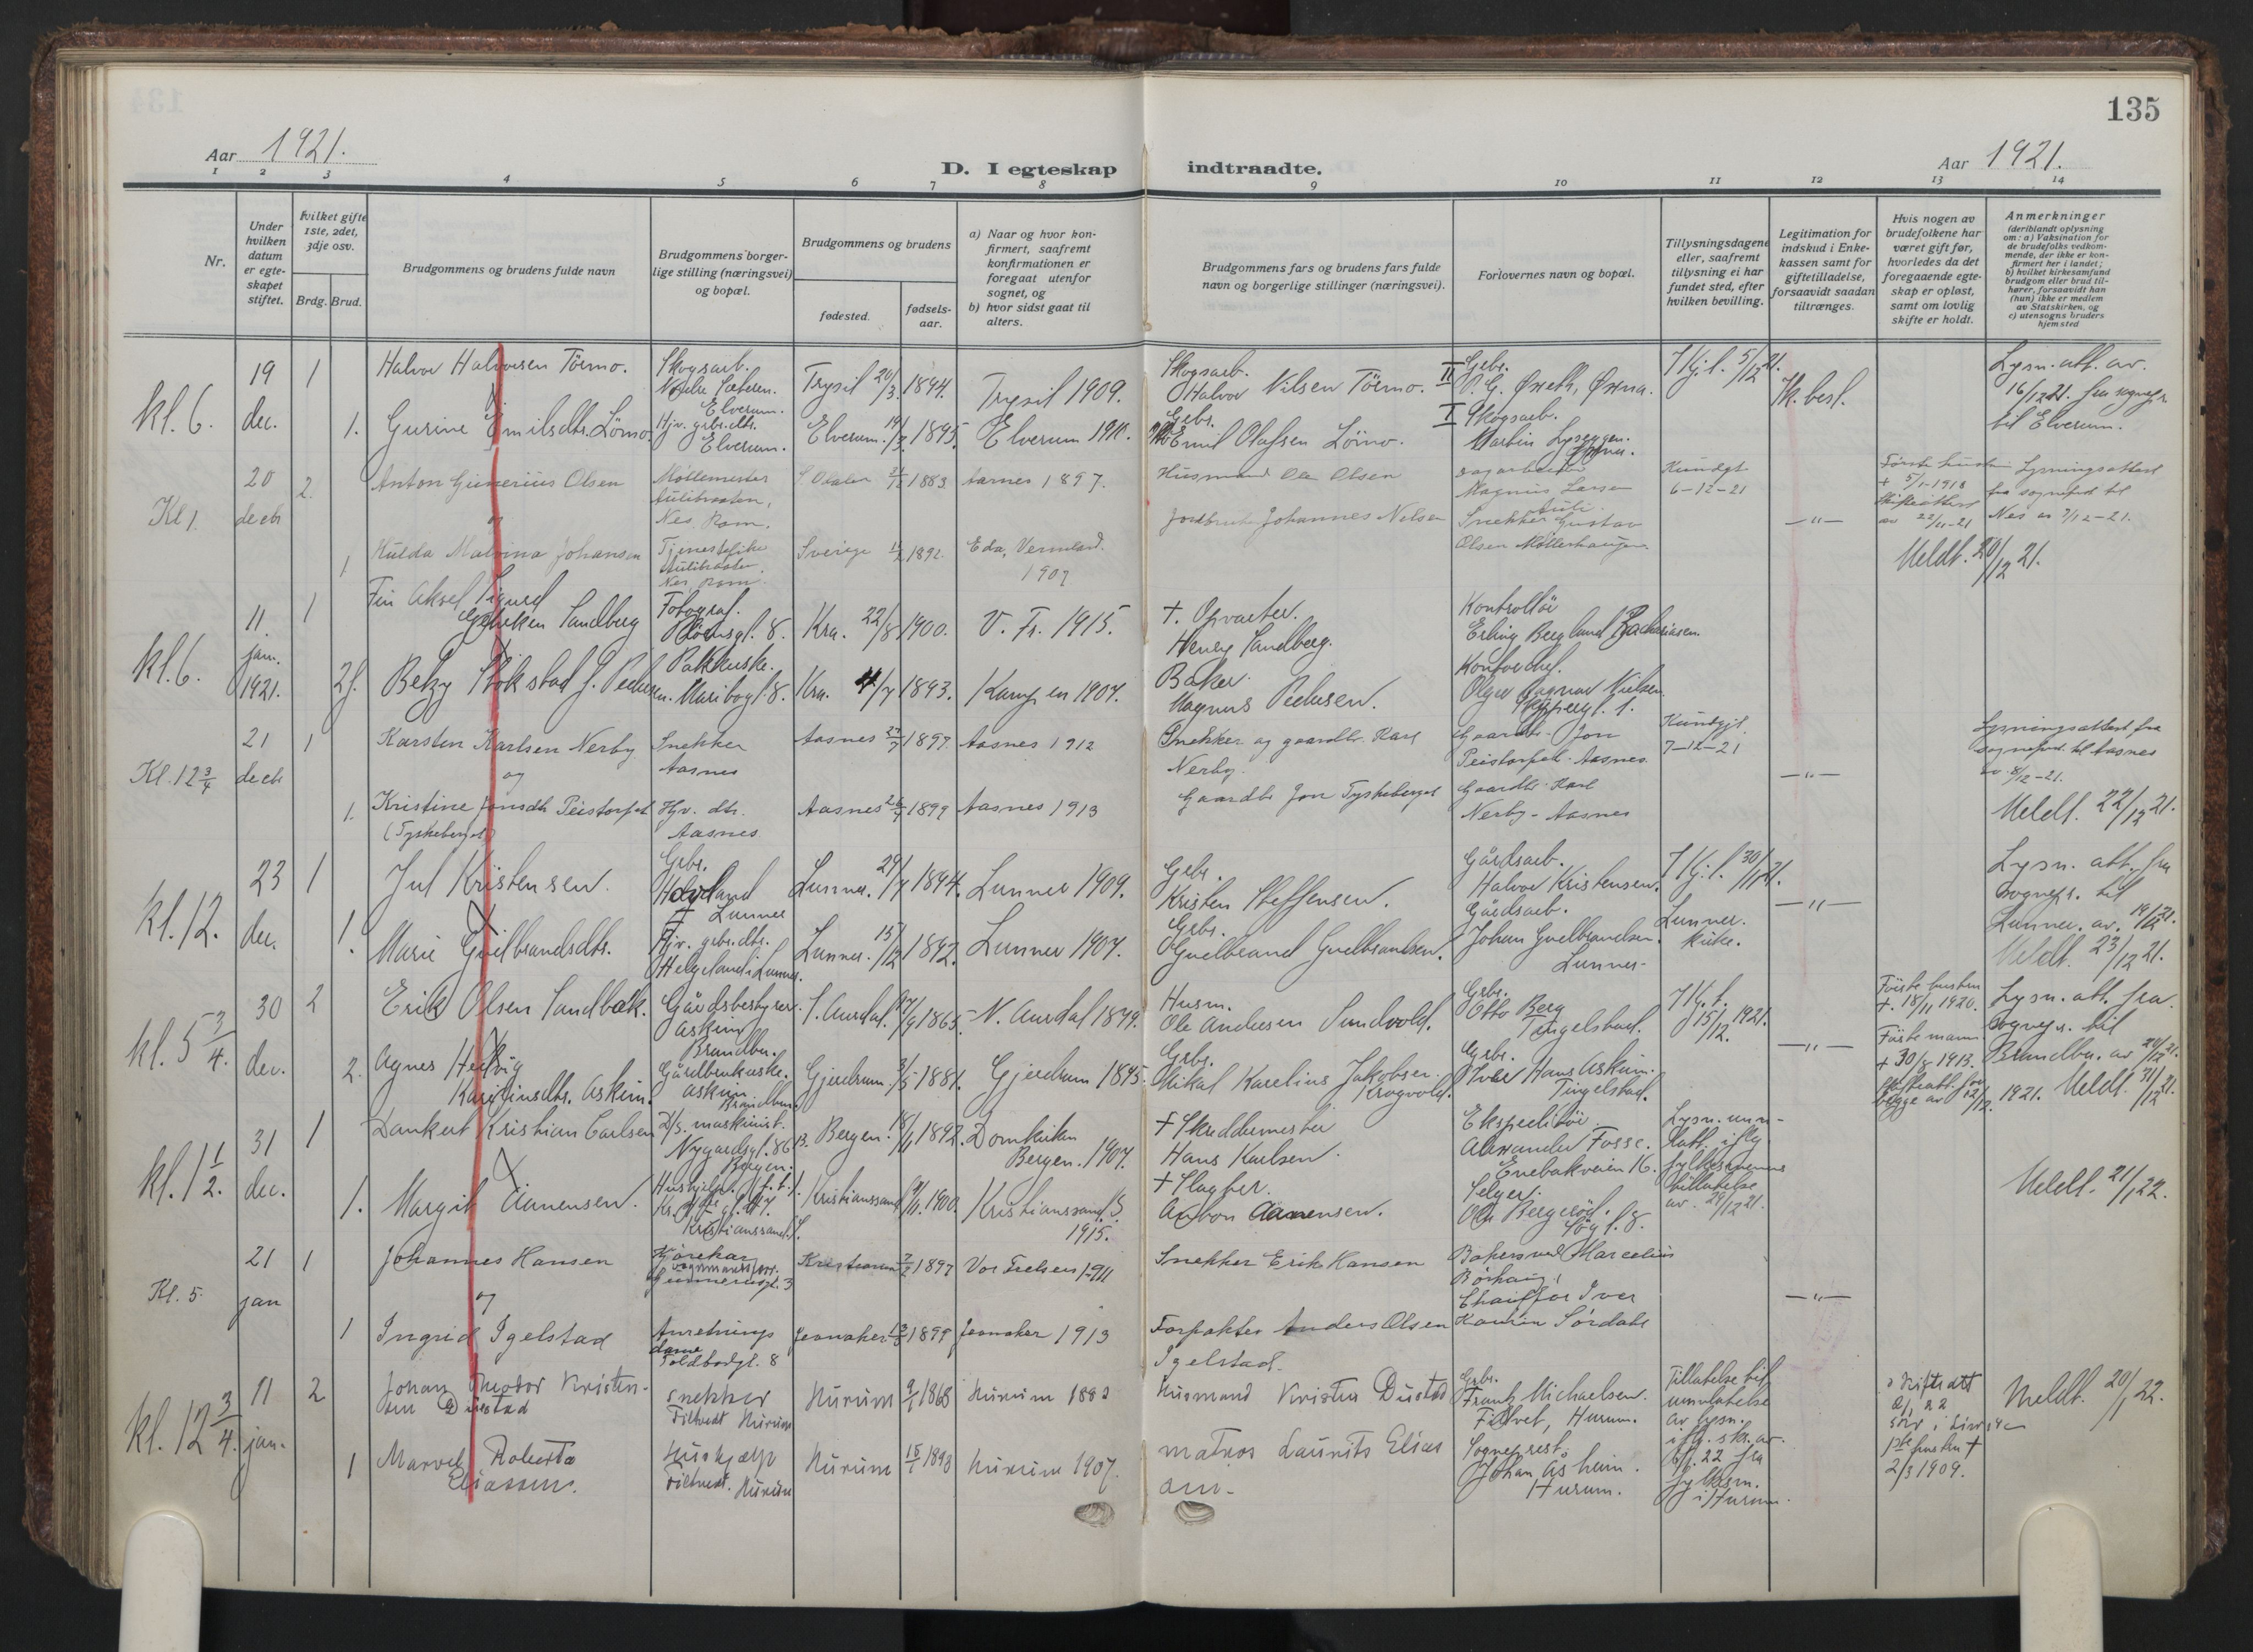 135
Aar 1921.
D. I egteskap indtraadte.
Aar 1921.
1 2 3 4 5 6 7 8 9 10 11 12 13 14
Nr.
Under hvilken datum er egteskapet stiftet.
Hvilket gifte 1ste, 2det, 3dje osv.
Brdg. Brud.
Brudgommens og brudens fulde navn
Brudgommens borgerlige stilling (næringsvei) og bopæl.
Brudgommens og brudens
fødested.
fødselsaar.
a) Naar og hvor konfirmert, saafremt konfirmationen er foregaat utenfor sognet, og
b) hvor sidst gaat til alters.
Brudgommens fars og brudens fars fulde navn og borgerlige stillinger (næringsvei).
Forlovernes navn og bopæl.
Tillysningsdagene eller, saafremt tillysning ei har fundet sted, efter hvilken bevilling.
Legitimation for indskud i Enkekassen samt for giftetilladelse, forsaavidt saadan tiltrænges.
Hvis nogen av brudefolkene har været gift før, hvorledes da det foregaaende egteskap er opløst, samt om lovlig skifte er holdt.
Anmerkninger (deriblandt oplysning om: a) Vaksination for de brudefolks vedkommende, der ikke er konfirmert her i landet; b) hvilket kirkesamfund brudgom eller brud tilhører, forsaavidt han (hun) ikke er medlem av Statskirken, og c) utensogns bruders hjemsted
kl. 6. 19 dec. 1
Halvor Halvorsen Törmo.
Skogsarb. Elverum.
Trysil 20/3 1894. Trysil 1909.
Skogsarb. Halvor Nilsen Törmo.
Gebr. O. G. Øxeth, Øxna.
7 Kj. l. 5/12 21.
Sk. besl.
Lysn. att. av. 16/12 21. fra sognepr. til Elverum.
1. Gurine Emilsdtr. Lömo.
Hjv. grbr. dtr. Elverum.
Elverum. 19/3 1895. Elverum 1910.
Gebr. Emil Olafsen Lömo.
Skogsarb. Martin Lyseggen.
Kl 1. 20 decbr 2.
Anton Gunerius Olsen
og
Møllemester Aulibraaten, Nes, Rom.
S Odalen 1883. Aarnes 1897.
Husmand Ole Olsen
Sagarbeider Magnus Larsen Auli.
Kundgt 6-12-21
Første hustru + 5/1-1918 Skifteattest av 22/11-21
Lysningsattest fra sogneprest til Nes av 7/12-21.
1 Hulda Malvina Johansen
Tjenestepike Aulibraaten. Nes Rom.
Sverige 1892. Eda, Vermland. 1907
Jordbruker Johannes Nilsen
Snekker Gustav Olsen Møllerhaugen.
—"—
Meldt. 20/12 21.
kl. 6. 11. jan. 1921. 1
Fin Aksel Sigurd Sandberg
Fotograf.
Kra. 22/8 1900. V. Fr. 1915.
+. Opvarter. Henry Sandberg.
Kontrollör Erling Bergland Zachariasen.
2 f. Betzy Stökstad f. Pedersen.
Pakkerske. Maribogt. 8.
Kra. 4/7 1893. Kampen 1907.
Baker. Magnus Pedersen.
Kontorchef. Olger Ragnar Nielsen. Skippergt. 1.
Kl. 12 3/4 21 decbr 1
Karsten Karlsen Nerby
og
Snekker Aasnes
Aasnes 1897. Aasnes 1912
Snekker og gaardbr. Karl Nerby.
Gaardbr. Jon Peistorpet. Aasnes.
Kundgjt. 7-12-21
—"—
Lysningsattest fra sognepr. til Aasnes av 8/12-21.
1. Kristine Jonsdtr Peistorpet (Tyskeberget)
Hjv. dtr. Aasnes
Aasnes 1899 Aasnes 1913
Gaardbr Jon Tyskeberget
Gaardbr. Karl Nerby - Aasnes
Meldt. 22/12 21.
kl. 12. 23 dec. 1
Jul Kristensen.
Grbr. Lunner
Lunner. 29/7 1894. Lunner 1909.
Gebr. Kristen Steffensen.
Gårdsarb. Halvor Kristensen.
7 Kj. l. 30/11 21.
—"—
Lysn. att. fra sognepr. til Lunner. av. 19/12 21.
1. Marie Gulbrandsdtr.
Hjv. grbr. dtr. Helgeland i Lunner.
Lunner. 15/12 1892. Lunner 1907.
Grbr. Gulbrand Gulbrandsen.
Gårdsarb. Johan Gulbrandsen. Lunner.
Lunner. kirke.
Meldt. 23/12 21.
kl. 5 3/4. 30 dec. 2
Erik Olsen Sandbæk.
Gårdsbestyrer. Askim Brandbu.
S. Aurdal. 1865. N. Aurdal 1879.
Husm. Ole Andersen Sundvold.
Grbr. Otto Berg Tingelstad.
7 Kj. l. 15/12. 1921.
—"—
Første hustru +. 18/11 1920.
Første mann + 30/8 1913. Skifteatt. for begge av 12/12 1921.
Lysn. att. fra sognepr. til Brandbu. av 20/12 21.
2. Agnes Hedvig Karelinsdtr. Askim.
Gårdbrukerske. Askim Brandbu.
Gjerdrum. 3/5 1881. Gjerdrum 1895.
Grbr. Mikal Karelius Jakobsen Krogvold.
Grbr. Iver Hans Askim. Tingelstad.
Meldt. 31/12 21.
kl. 1 1/2. 31 dec. 1
Dankert Kristian Carlsen
D/s. maskinist. Nygardsgt. 86 B. Bergen.
Bergen. 18/11 1892. Domkirken Bergen. 1907.
+ Skreddermester Hans Karlsen.
Ekspeditör. Alexander Fosse. Enebakveien 16.
Lysn. unnlatt. iflg. fylkesmannens tillatelse av. 29/12 21.
1. Margit Aanensen.
Kristianssand. S.
Kristianssand 1900. Kristianssand. S. 1915.
+ Slagter. Anton Aanensen.
Selger. Ole Bergeröd.
Meldt. 21/1 22.
Kl. 5. 21 jan 1
Johannes Hansen
og
Kjørekar Gunnerusgt. 3
Kristiania 1897 Vor Frelsers 1911
Snekker Erik Hansen
Bakersvend Marcelius Børhaug,
—"—
1 Ingrid Igelstad
Anretningsdame Toldbodgt. 8
Jevnaker 1899 Jevnaker 1913
Forpakter Anders Olsen Igelstad.
Chauffør Iver Kaurin Sørdahl
kl. 12 3/4. 11 jan. 2
Johan Theodor Kristensen Dustad
Snekker Filtvedt Hurum
Hurum 9/1 1868 Hurum 1883
Husmand Kristen Dustad
Grbr. Frantz Michaelsen. Filtvet, Hurum.
Tillatelse til unnlatelse av lysn. iflg. skr. av. 6/1. 22 fra fylkesm. i Hurum.
Skifteatt 2/1 22
1ste hustru + 2/3 1909.
Meldt. 20/1 22.
1 Marvel Roberta Eliassen.
Hushjelp Filtvedt. Hurum
Hurum 15/1 1898 Hurum 1907.
Matros Laurits Eliassen.
Sogneprest. Johan Åsheim. Hurum.